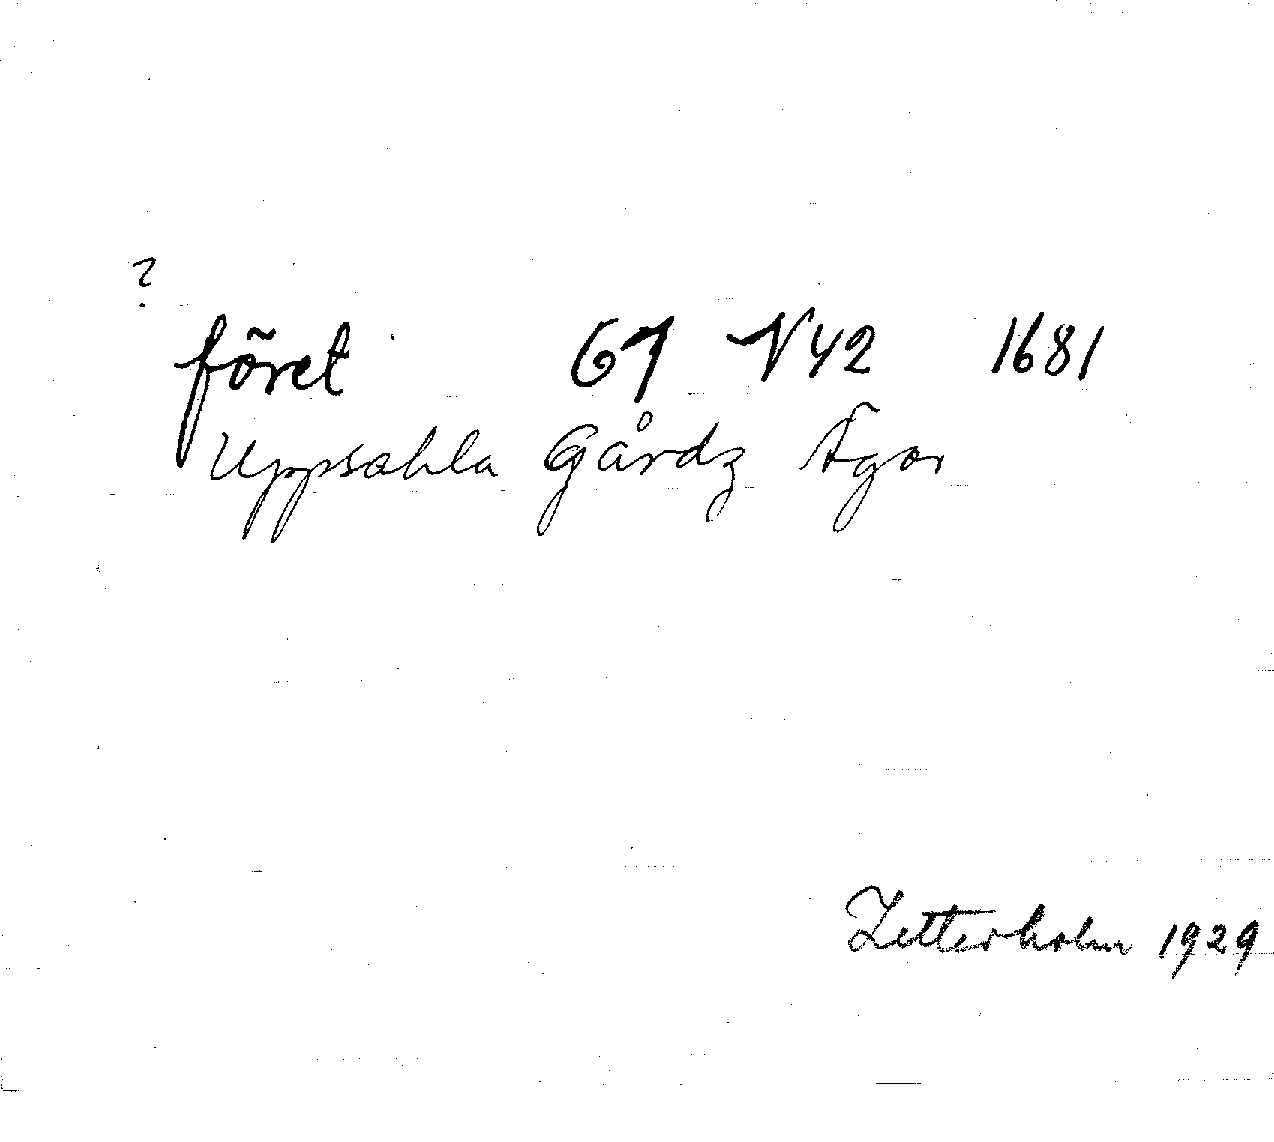 ?
föret 67 N42 1681
Uppsahla Gårdz Ägor
Zetterholm 1929